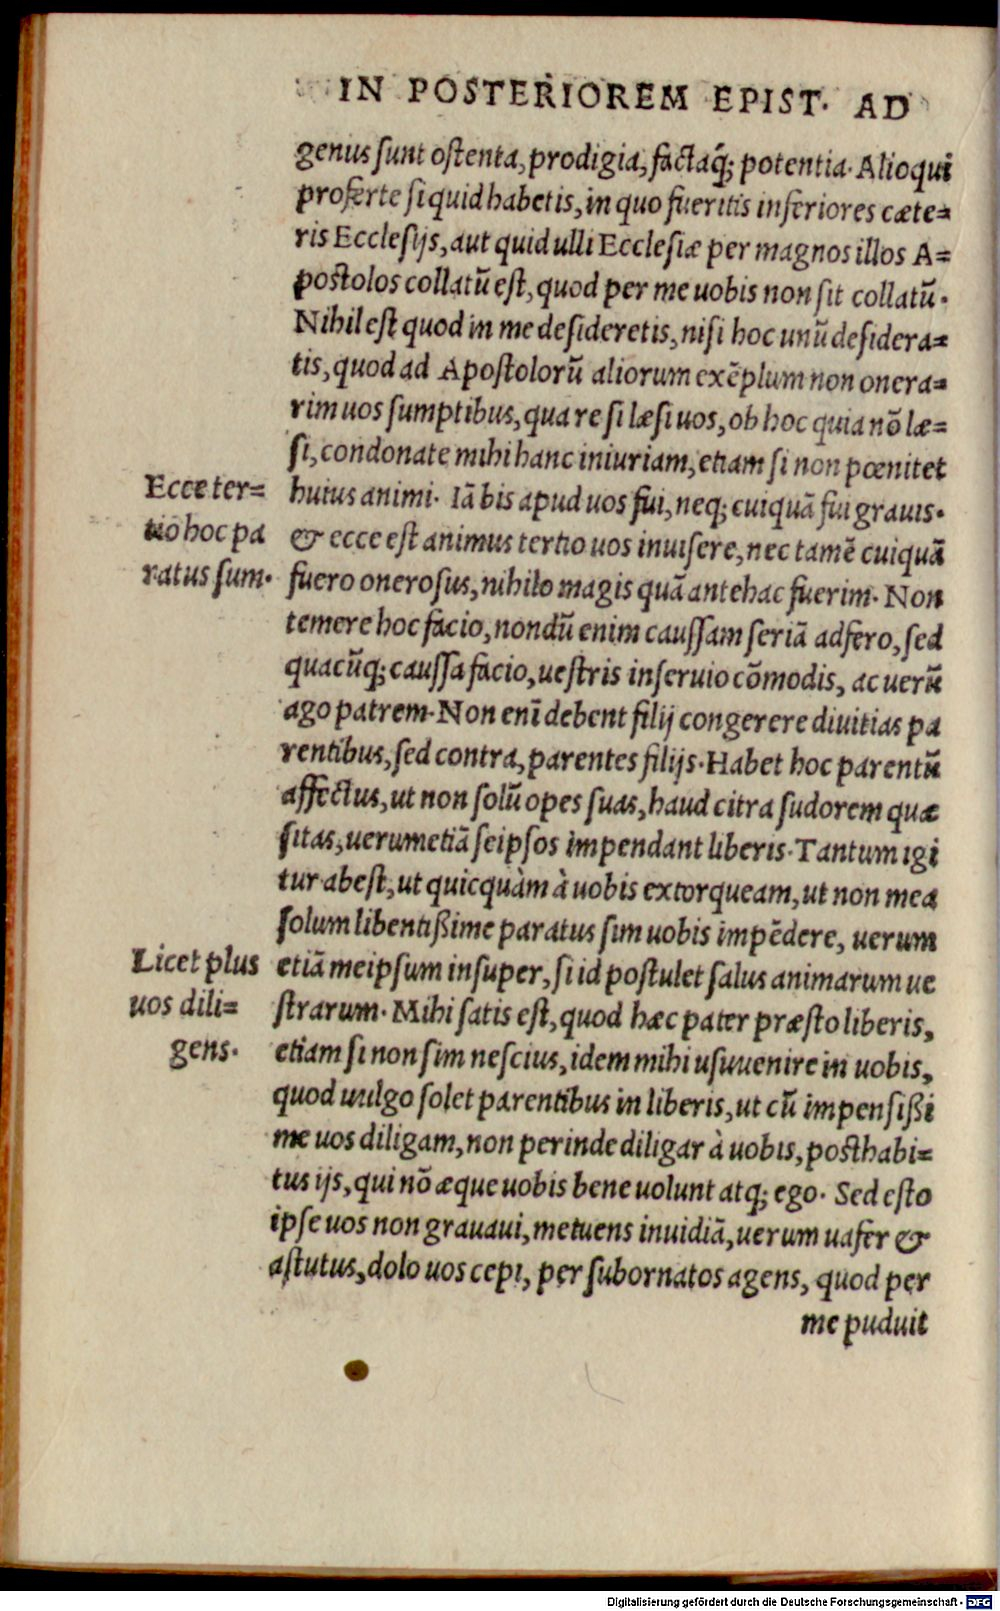 IN POSTERIOREM EPIST. AD
genus ſunt oſtenta, prodigia, factaq; potentia. Alioqui
proferte ſi quid habetis, in quo fueritis inferiores cæte=
ris Eccleſijs, aut quid ulli Eccleſiæ per magnos illos A=
poſtolos collatũ eſt, quod per me uobis non ſit collatũ.
Nihil eſt quod in me deſideretis, niſi hoc unũ deſidera=
tis, quod ad Apoſtolorũ aliorum exẽplum non onera=
rim uos ſumptibus, qua re ſi læſi uos, ob hoc quia nõ læ=
ſi, condonate mihi hanc iniuriam, etiam ſi non pœnitet
Ecce ter=
tio hoc pa
ratus ſum.
huius animi. Iã bis apud uos fui, neq; cuiquã fui grauis.
& ecce eſt animus tertio uos inuiſere, nec tamẽ cuiquã
fuero oneroſus, nihilo magis quã antehac fuerim. Non
temere hoc facio, nondũ enim cauſſam ſeriã adfero, ſed
quacũq; cauſſa facio, ueſtris inſeruio cõmodis, ac uerũ
ago patrem. Non enĩ debent filij congerere diuitias pa
rentibus, ſed contra, parentes filijs. Habet hoc parentũ
affectus, ut non ſolũ opes ſuas, haud citra ſudorem quæ
ſitas, uerumetiã ſeipſos impendant liberis. Tantum igi
tur abeſt, ut quicquàm à uobis extorqueam, ut non mea
ſolum libentißime paratus ſim uobis impẽdere, uerum
Licet plus
uos dili=
gens.
etiã meipſum inſuper, ſi id poſtulet ſalus animarum ue
ſtrarum. Mihi ſatis eſt, quod hæc pater præſto liberis,
etiam ſi non ſim neſcius, idem mihi uſuuenire in uobis,
quod uulgo ſolet parentibus in liberis, ut cũ impenſißi
me uos diligam, non perinde diligar à uobis, poſthabi=
tus ijs, qui nõ æque uobis bene uolunt atq; ego. Sed eſto
ipſe uos non grauaui, metuens inuidiã, uerum uafer &
aſtutus, dolo uos cepi, per ſubornatos agens, quod per
me puduit
Digitalisierung gefördert durch die Deutsche Forschungsgemeinschaft - DFG